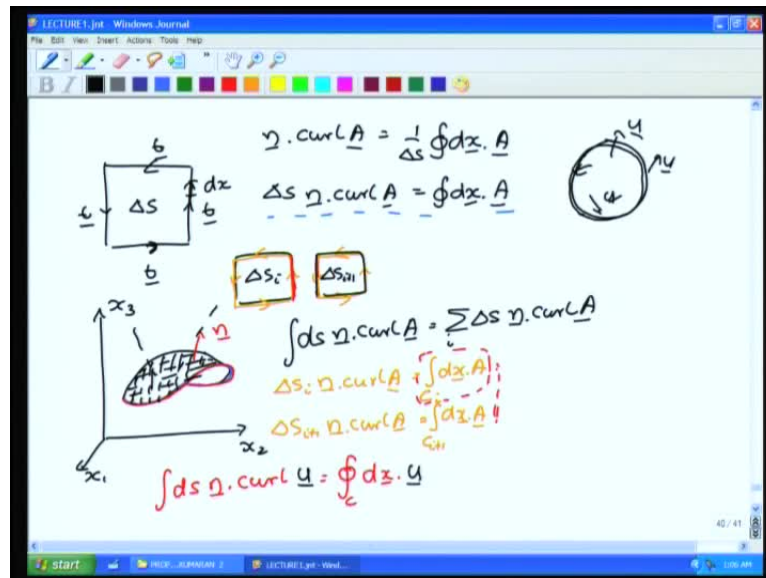 LECTURE1.jnt - Windows Journal
File Edit View Insert Actions Tools Help
B I
t
n̲ . curl A̲ = 1/ΔS ∮dx̲ . A̲
u̲
dx
t̲ ΔS t̲
ΔS n̲ . curl A̲ = ∮dx̲ . A̲
u̲
u
t̲
ΔSᵢ ΔSᵢ₊₁
x₃
n̲
∫ds n̲ . curl A̲ = Σᵢ ΔS n̲ . curl A̲
ΔSᵢ n̲ . curl A̲ = ∫_Cᵢ dx̲ . A̲
ΔSᵢ₊₁ n̲ . curl A̲ = ∫_Cᵢ₊₁ dx̲ . A̲
x₂
x₁
∫ds n̲ . curl u̲ = ∮_C dx̲ . u̲
40 / 41
start PROF...KUMARAN 2 LECTURE1.jnt - Wind... 1:06 AM